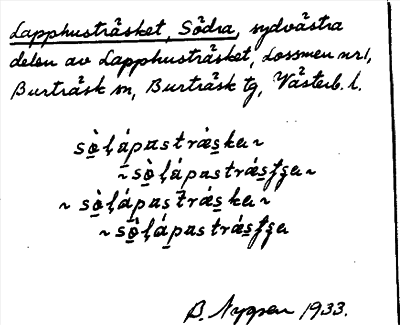 Lapphusträsket, Södra, sydvästra
delen av Lapphusträsket, Lossmen nr 1,
Burträsk sn, Burträsk tg, Västerb. l.
sò̱ḷápastrǽs̱ka ~
~ sò̱ḷápastrǽs̱ʃʒa ~
~ sò̱ḷápastrǽs̱ka ~
~ sò̱ḷápastrǽs̱ʃʒa
B. Nygren 1933.